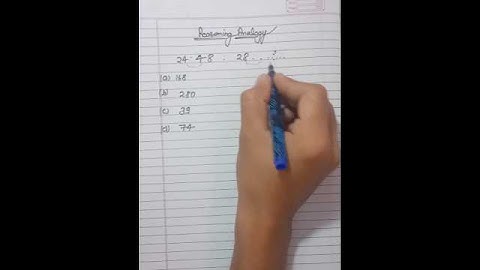 Reasoning Analogy
24 48 . 28 . . . ? . .
(a) 168
(b) 280
(c) 39
(d) 74